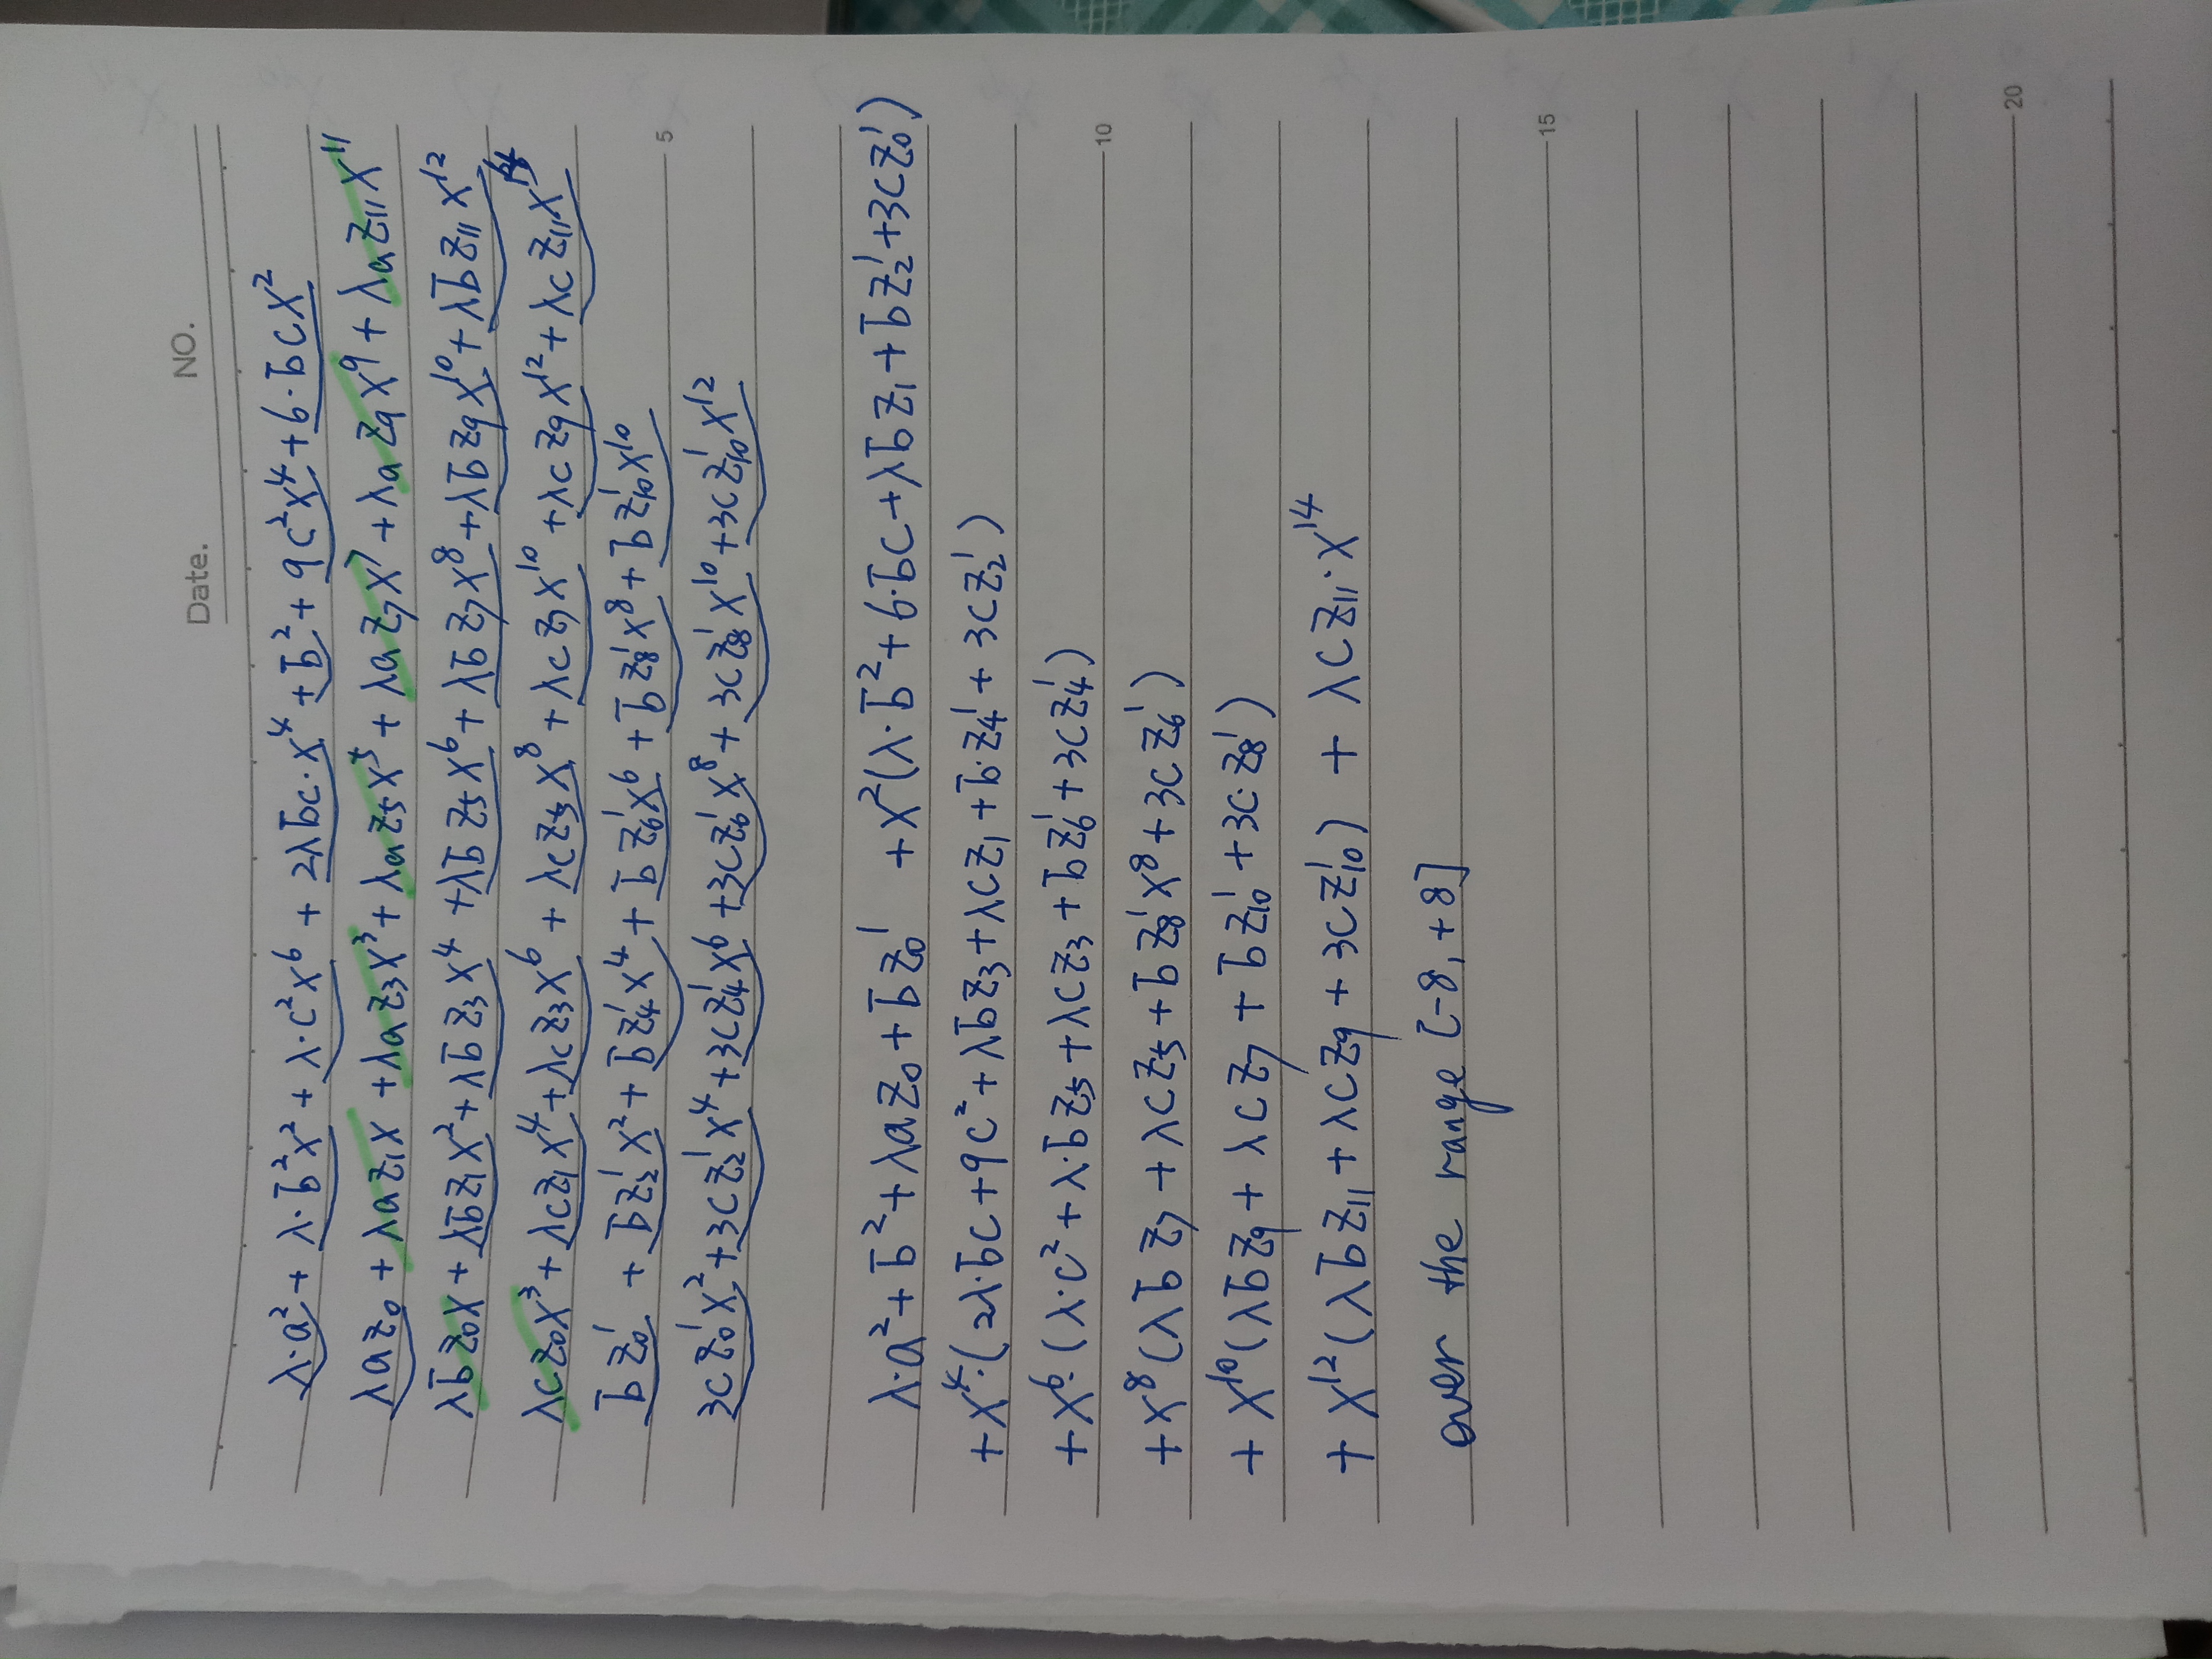 Date. NO.
λ·a² + λ·b̄²x² + λ·c²x⁶ + 2λb̄c·x⁴ + b̄² + 9c²x⁴ + 6·b̄cx²
λaz₀ + λaz₁x + λaz₃x³ + λaz₅x⁵ + λaz₇x⁷ + λaz₉x⁹ + λaz₁₁x¹¹
λb̄z₀x + λb̄z₁x² + λb̄z₃x⁴ + λb̄z₅x⁶ + λb̄z₇x⁸ + λb̄z₉x¹⁰ + λb̄z₁₁x¹²
λcz₀x³ + λcz₁x⁴ + λcz₃x⁶ + λcz₅x⁸ + λcz₇x¹⁰ + λcz₉x¹² + λcz₁₁x¹⁴
b̄z₀' + b̄z₂'x² + b̄z₄'x⁴ + b̄z₆'x⁶ + b̄z₈'x⁸ + b̄z₁₀'x¹⁰
5
3cz₀'x² + 3cz₂'x⁴ + 3cz₄'x⁶ + 3cz₆'x⁸ + 3cz₈'x¹⁰ + 3cz₁₀'x¹²
λ·a² + b̄² + λaz₀ + b̄z₀' + x²(λ·b̄² + 6·b̄c + λb̄z₁ + b̄z₂' + 3cz₀')
+ x⁴·(2λ·b̄c + 9c² + λb̄z₃ + λcz₁ + b̄·z₄' + 3cz₂')
+ x⁶·(λ·c² + λ·b̄z₅ + λcz₃ + b̄z₆' + 3cz₄')
10
+ x⁸(λb̄z₇ + λcz₅ + b̄z₈'x⁸ + 3cz₆')
+ x¹⁰(λb̄z₉ + λcz₇ + b̄z₁₀' + 3c·z₈')
+ x¹²(λb̄z₁₁ + λcz₉ + 3cz₁₀') + λcz₁₁·x¹⁴
over the range [-8, +8]
15
20